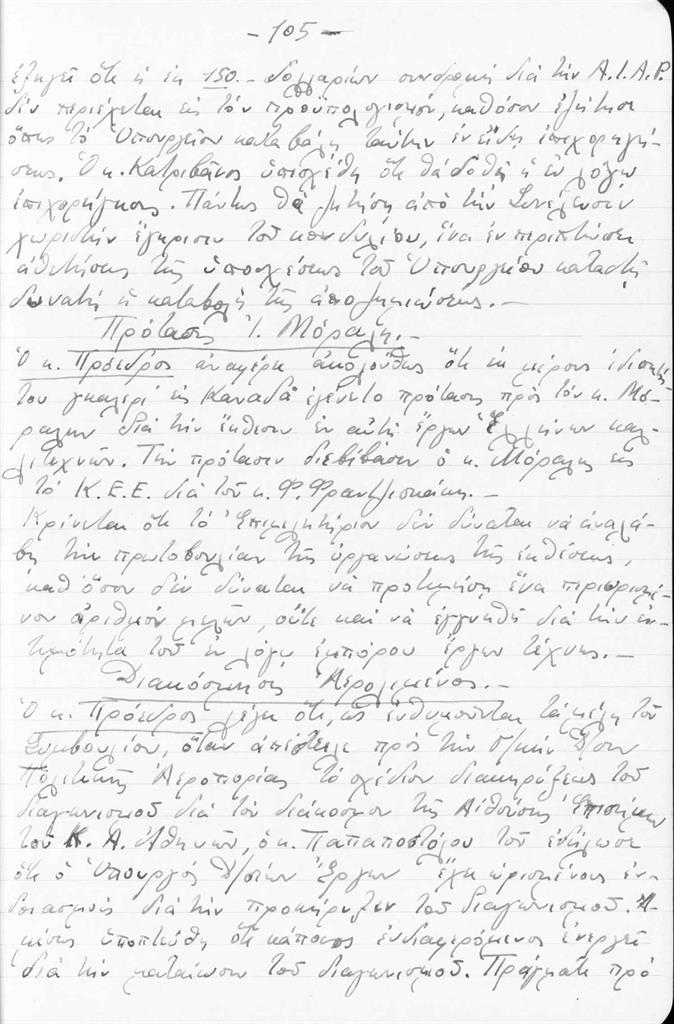 - 105 -
ἐξηγεῖ ὅτι ἡ ἐκ 150.- δολλαρίων συνδρομή διά τήν A.I.A.P.
δέν περιέχεται εἰς τόν προϋπολογισμόν, καθόσον ἐζήτησε
ὅπως τό Ὑπουργεῖον καταβάλῃ ταύτην ἐν εἴδει ἐπιχορηγή-
σεως. Ὁ κ. Κατριβάνος ὑπεσχέθη ὅτι θά δοθῇ ἡ ἐν λόγῳ
ἐπιχορήγησις. Πάντως θά ζητήσῃ ἀπό τήν Συνέλευσιν
χωριστήν ἔγκρισιν τοῦ κονδυλίου, ἵνα ἐν περιπτώσει
ἀθετήσεως τῆς ὑποσχέσεως τοῦ Ὑπουργείου καταστῇ
δυνατή ἡ καταβολή τῆς ἀποζημιώσεως.-
Πρότασις Ἰ. Μόραλη.-
Ὁ κ. Πρόεδρος ἀναφέρει ἀκολούθως ὅτι ἐκ μέρους ἰδιοκτή-
του γκαλερί εἰς Καναδᾶ ἐγένετο πρότασις πρός τόν κ. Μό-
ραλην διά τήν ἔκθεσιν ἐν αὐτῇ ἔργων Ἑλλήνων καλ-
λιτεχνῶν. Τήν πρότασιν διεβίβασεν ὁ κ. Μόραλης εἰς
τό Κ.Ε.Ε. διά τοῦ κ. Φ. Φραντζισκάκη.-
Κρίνεται ὅτι τό Ἐπιμελητήριον δέν δύναται νά ἀναλά-
βῃ τήν πρωτοβουλίαν τῆς ὀργανώσεως τῆς ἐκθέσεως,
καθ' ὅσον δέν δύναται νά προτιμήσῃ ἕνα περιωρισμέ-
νον ἀριθμόν μελῶν, οὔτε καί νά ἐγγυηθῇ διά τήν ἐν-
τιμότητα τοῦ ἐν λόγῳ ἐμπόρου ἔργων τέχνης.-
Διακόσμησις Ἀερολιμένος.-
Ὁ κ. Πρόεδρος λέγει ὅτι, ὡς ἐνθυμοῦνται τά μέλη τοῦ
Συμβουλίου, ὅταν ἀπέστειλε πρός τήν Δ/σιν
Πολιτικῆς Ἀεροπορίας τό σχέδιον διακηρύξεως τοῦ
διαγωνισμοῦ διά τόν διάκοσμον τῆς Αἰθούσης Ἐπισήμων
τοῦ Κ. Α. Ἀθηνῶν, ὁ κ. Παπαποστόλου τοῦ ἐδήλωσε
ὅτι ὁ Ὑπουργός Δ/σίων Ἔργων ἔχει ὡρισμένους ἐν-
δοιασμούς διά τήν προκήρυξιν τοῦ διαγωνισμοῦ. Ἀ-
μέσως ὑποπτεύθη ὅτι κάποιος ἐνδιαφερόμενος ἐνεργεῖ
διά τήν ματαίωσιν τοῦ διαγωνισμοῦ. Πράγματι πρό